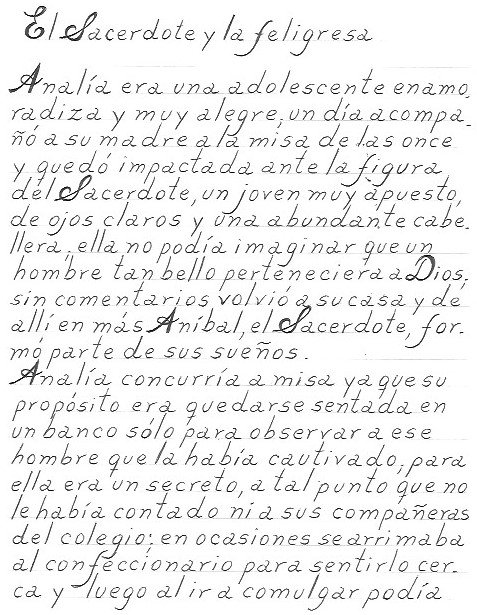 El Sacerdote y la feligresa
Analía era una adolescente enamo_
radiza y muy alegre, un día acompa_
ñó a su madre a la misa de las once
y quedó impactada ante la figura
del Sacerdote, un joven muy apuesto,
de ojos claros y una abundante cabe_
llera, ella no podía imaginar que un
hombre tan bello perteneciera a Dios,
sin comentarios volvió a su casa y de
allí en más Aníbal, el Sacerdote, for_
mó parte de sus sueños.
Analía concurría a misa ya que su
propósito era quedarse sentada en
un banco sólo para observar a ese
hombre que la había cautivado, para
ella era un secreto, a tal punto que no
le había contado ni a sus compañeras
del colegio; en ocasiones se arrimaba
al confeccionario para sentirlo cer_
ca y luego al ir a comulgar podía